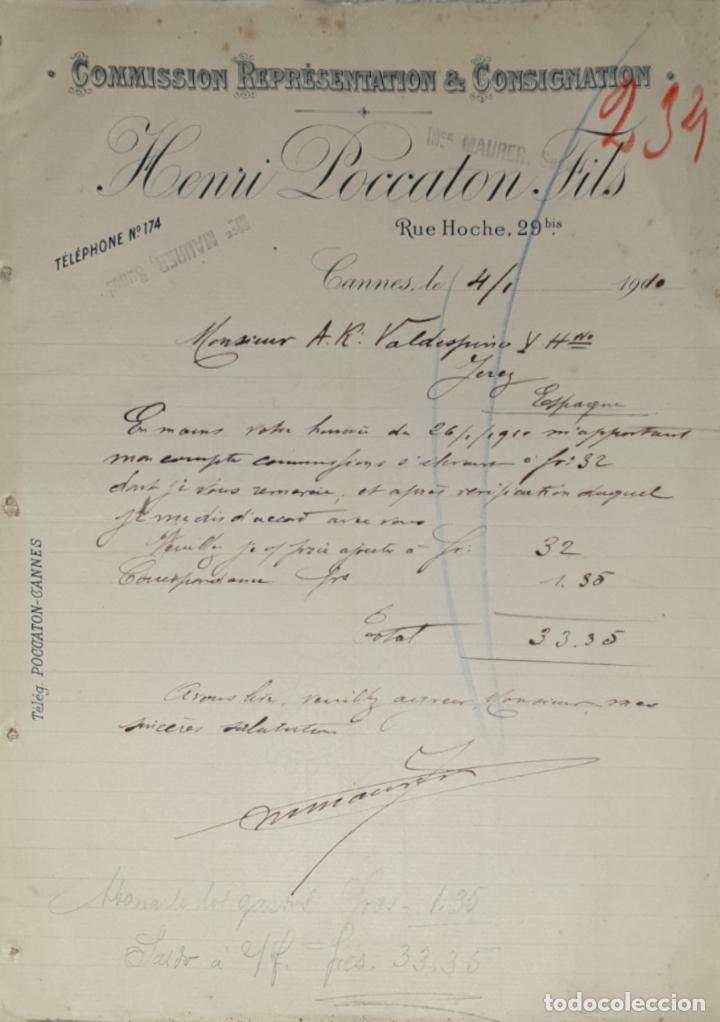 COMMISSION REPRÉSENTATION & CONSIGNATION
234
Mce MAURER,
Henri Poccaton Fils
Rue Hoche, 29 bis
TÉLÉPHONE No 174
Mce MAURER,
Cannes, le 4/1 1910
Monsieur A. R. Valdespino Y Hno
Jerez
Espagne
En mains votre honorée du 26/1/1910 m'apportant
mon compte commissions s'élevant à fr: 32
dont je vous remercie, et après vérification duquel
je me dis d'accord avec vous
Veuillez je vs prie ajouter à fr: 32
Correspondance frs 1.35
Total 33.35
A vous lire, veuillez agréer, Monsieur, mes
sincères salutations
Téleg. POCCATON-CANNES
Abonarle los gastos frcs - 1.35
Saldo á s/f. = frcs. 33.35
todocoleccion